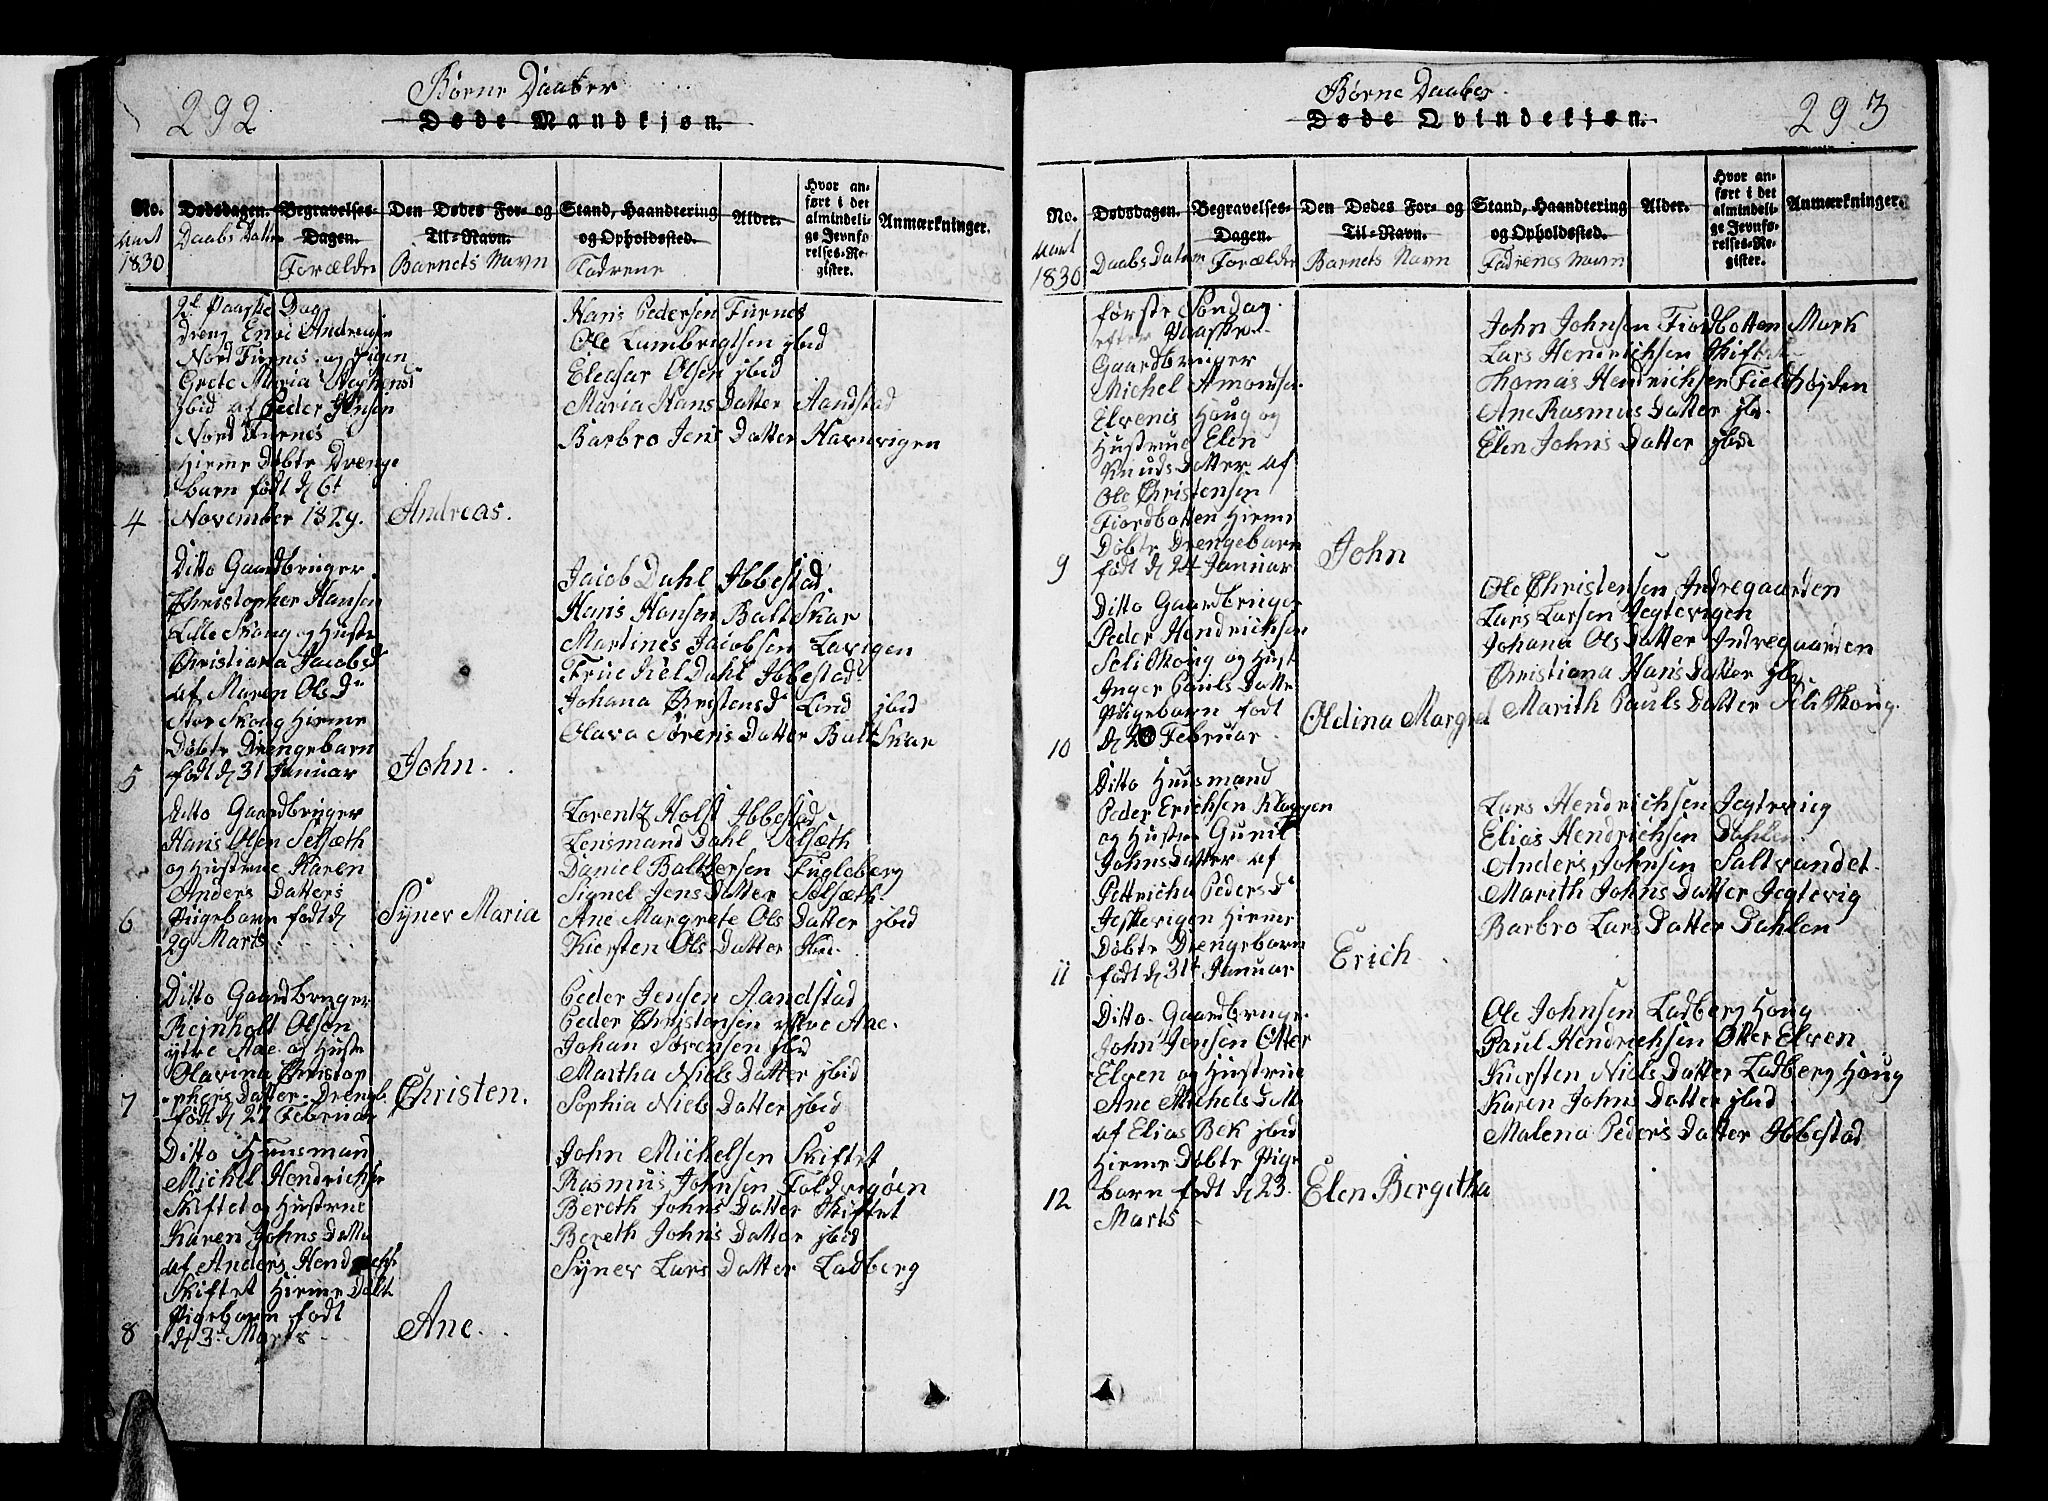 292
Børne Daaber
Døde Mandkjøn.
No.
Dødsdagen.
Begravelses-Dagen.
Den Dødes For- og Til-Navn.
Stand, Haandtering og Opholdssted.
Alder.
Hvor anført i det almindelige Jevnførelses-Register.
Anmærkninger.
Aaret 1830
Daabs Datter
Forældre
Barnets Navn
Fadrene
2d Paaske Dag
Dreng
Nord Furnes og Pigen
Grete Maria
jbid af Peder Jensen
Nord Furnes
Hieme Døbte Drenge
barn født d 6t
4 November 1829. Andreas.
Hans Pedersen Furnes
Ole Lumbrigtsen jbid
Eleasar Olsen jbid
Maria Hans Datter Aandstad
Barbro Jens Datter Havnvigen
Ditto Gaardbruger
Christopher Hansen
Lille Skoug og Hustr
Christiana Jacobsd
af Maren Ols Dr
Stor Skoug Hieme
Døbte Drengebarn
5 født d 31 Januar John.
Jacob Dahl Ibbestad
Hans Hansen Balt Skar
Martines Jacobsen Lavigen
Frue Kiel Dahl Ibbestad
Johana Christensd Lind jbid
Olava Sørens Datter Balt Skar
Ditto Gaardbruger
Hans Olsen Selsæth
og Hustrue Karen
Anders Datters
6 Pigebarn født d Syner Maria
29 Marts
Lorentz Holst Ibbestad
Lensmand Dahl Selsæth
Daniel Balthersen Fugleberg
Signel Jens Datter Selsæth
Ane Margrete Ols Datter jbid
Kiersten Ols Datter jbid.
Ditto Gaardbruger
Rejnholt Olsen
ytre Aae og Hustr
Olavina Christop
phers Datter Drengb.
7 født d 27 Februar Christen.
Peder Jensen Aandstad
Peder Christensen ytre Aae.
Johan Sørensen jbid
Martha Niels Datter jbid
Sophia Niels Datter jbid
Ditto Huusmand
Michel Hendrichsen
Skiftet og Hustrue
Karen Johns Datter
af Anders Hendrichs
Skiftet Hieme Døbt
Pigebarn født
8 d 3 Marts Ane.
John Michelsen Skiftet
Rasmus Johnsen Foldvigøen
Bereth Johns Datter Skiftet
Bereth Johns Datter jbid
Syner Lars Datter Ladberg
293
Børne Daaber
Døde Qvindekjøn.
No.
Dødsdagen.
Begravelses-Dagen.
Den Dødes For- og Til-Navn.
Stand, Haandtering og Opholdssted.
Alder.
Hvor anført i det almindelige Jevnførelses-Register.
Anmærkninger.
Aaret 1830
Daabs Datter
Forældre
Barnets Navn
Fadrenes Navn
første Søndag
efter Paaske
Gaardbruger
Michel Amonsen
Elvenes Houg og
Hustrue Elen
Knuds Datter af
Ole Christensen
Fiordbotten Hieme
Døbte Drengebarn
9 født d 24 Januar John
John Johnsen Fiordbotten Mark
Lars Hendrichsen Skiftet
Thomas Hendrichsen Fieldhøjden
Ane Rasmus Datter jbi.
Elen Johns Datter jbid
Ditto Gaardbruger
Peder Hendrichsen
Seliskoug og Hust
Inger Pauls Datter
Pigebarn født
10 d Februar Oldina Margret
Ole Christensen Indregaarden
Lars Larsen Jegtevigen
Johana Ols Datter Indregaarden
Christiana Hans Datter jbid
Marith Pauls Datter Seliskoug
Ditto Huusmand
Peder Erichsen Kløppen
og Hustrue Gunil
Johns Datter af
Pettricha Peders Dr
Jegtevigen Hieme
Døbte Drengebarn
11 født d 31t Januar Erich.
Lars Hendrichsen Jegtevig
Elias Hendrichsen Dahlen
Anders Johnsen Saltvandet
Marith Johns Datter Jegtevig
Barbro Lars Datter Dahlen
Ditto Gaardbruge.
John Jensen Otter
Elven og Hustrue
Ane Michels Datt
af Elias Bek jbid
Hieme Døbte Pige
12 barn født d 23. Elen Bergitha
Marts
Ole Johnsen Ladberg Houg
Paul Hendrichsen Otter Elven
Kiersten Niels Datter Ladberg Houg
Karen Johns Datter jbid
Malena Peders Datter Ibbestad